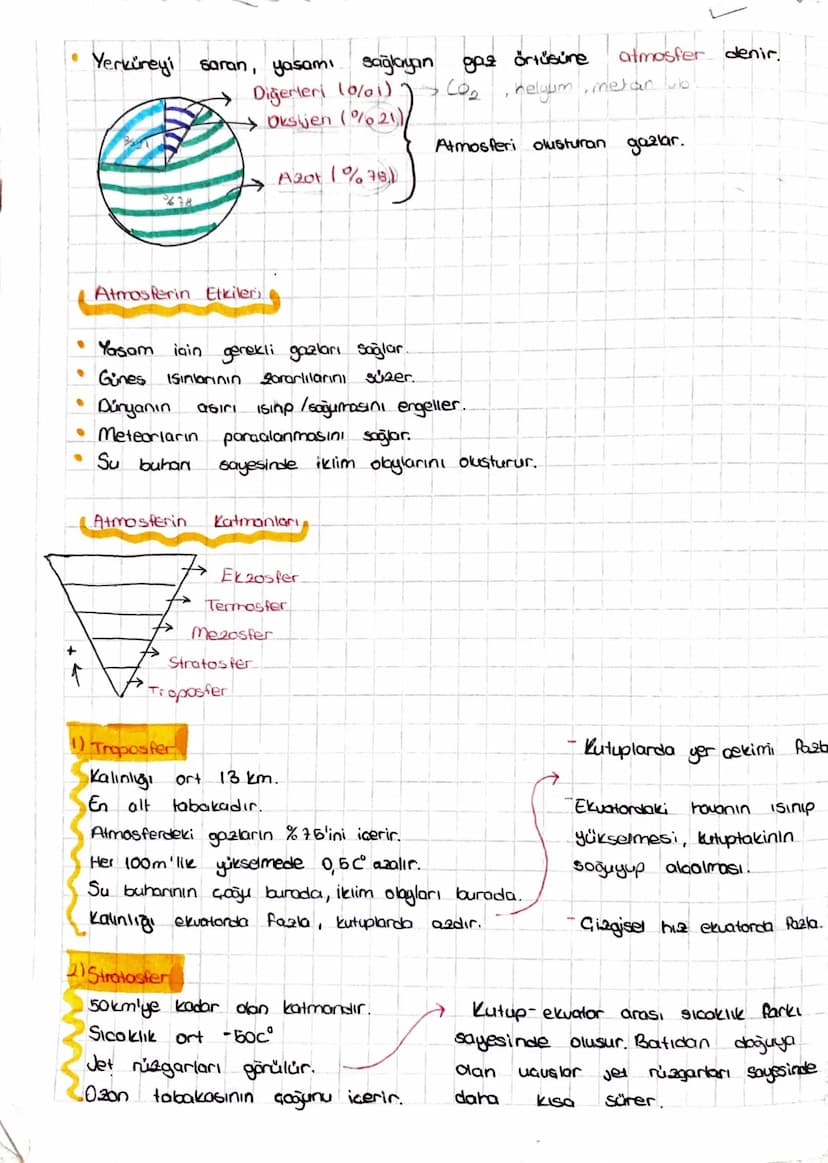 • Yerküreyi saran, yaşamı sağlayan gaz örtüsüne atmosfer denir.
Diğerleri (%1) → CO₂, helyum, metan vb.
Oksijen (%21)
Atmosferi oluşturan gazlar.
Azot (%78)
%21
%78
Atmosferin Etkileri
• Yaşam için gerekli gazları sağlar.
• Güneş ışınlarının zararlılarını süzer.
• Dünyanın aşırı ısınıp/soğumasını engeller.
• Meteorların parçalanmasını sağlar.
• Su buharı sayesinde iklim olaylarını oluşturur.
Atmosferin Katmanları
Ekzosfer
Termosfer
Mezosfer
+
Stratosfer
Troposfer
1) Troposfer
Kalınlığı ort 13 km.
En alt tabakadır.
Atmosferdeki gazların %75'ini içerir.
Her 100m'lik yükselmede 0,5C° azalır.
Su buharının çoğu burada, iklim olayları burada.
Kalınlığı ekvatorda fazla, kutuplarda azdır.
- Kutuplarda yer çekimi fazla
- Ekvatordaki havanın ısınıp
yükselmesi, kutuptakinin
soğuyup alçalması.
- Çizgisel hız ekvatorda fazla.
2) Stratosfer
50km'ye kadar olan katmandır.
Sıcaklık ort -50C°
Jet rüzgarları görülür.
Ozon tabakasının çoğunu içerir.
Kutup-ekvator arası sıcaklık farkı
sayesinde oluşur. Batıdan doğuya
olan uçuşlar jet rüzgarları sayesinde
daha kısa sürer.